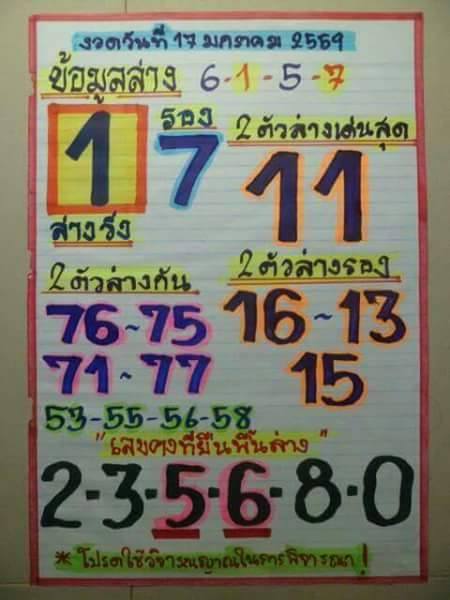 งวดวันที่ 17 มกราคม 2559
ข้อมูลล่าง 6-1-5-7
1 รอง 7
ล่างวิ่ง
2 ตัวล่างเด่นสุด
11
2 ตัวล่างกัน
76~75
71~77
53-55-56-58
2 ตัวล่างรอง
16~13
15
"เลขคงที่ยืนพื้นล่าง"
2-3-5-6-8-0
* โปรดใช้วิจารณญาณในการพิจารณา!